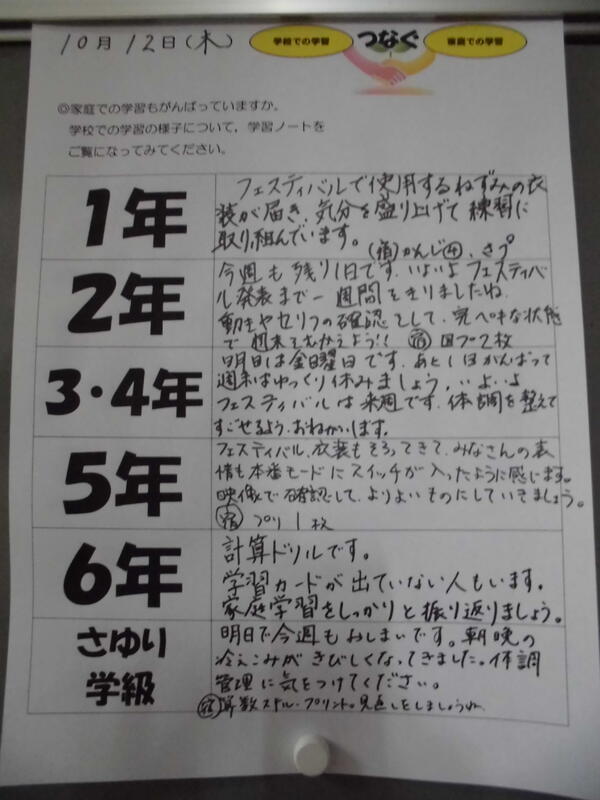 10月12日(木)
学校での学習 つなぐ 家庭での学習
◎家庭での学習もがんばっていますか。
学校での学習の様子について，学習ノートを
ご覧になってみてください。
1年
フェスティバルで使用するねずみの衣
装が届き、気分を盛り上げて練習に
取り組んでいます。
(宿)かんじ④、さプ
2年
今週も残り1日です。いよいよフェスティバ
ル発表まで一週間をきりましたね。
動きやセリフの確認をして、完ペキな状態
で週末をむかえよう!! 宿 国プ2枚
3・4年
明日は金曜日です。あと1日がんばって
週末はゆっくり休みましょう。いよいよ
フェスティバルは来週です。体調を整えて
すごせるよう、おねがいします。
5年
フェスティバル、衣装もそろってきて、みなさんの表
情も本番モードにスイッチが入ったように感じます。
映像で確認して、よりよいものにしていきましょう。
宿 プリ1枚
6年
計算ドリルです。
学習カードが出ていない人もいます。
家庭学習をしっかりと振り返りましょう。
さゆり
学級
明日で今週もおしまいです。朝晩の
冷えこみがきびしくなってきました。体調
管理に気をつけてください。
宿 算数スキル・プリント。見直しをしましょうね